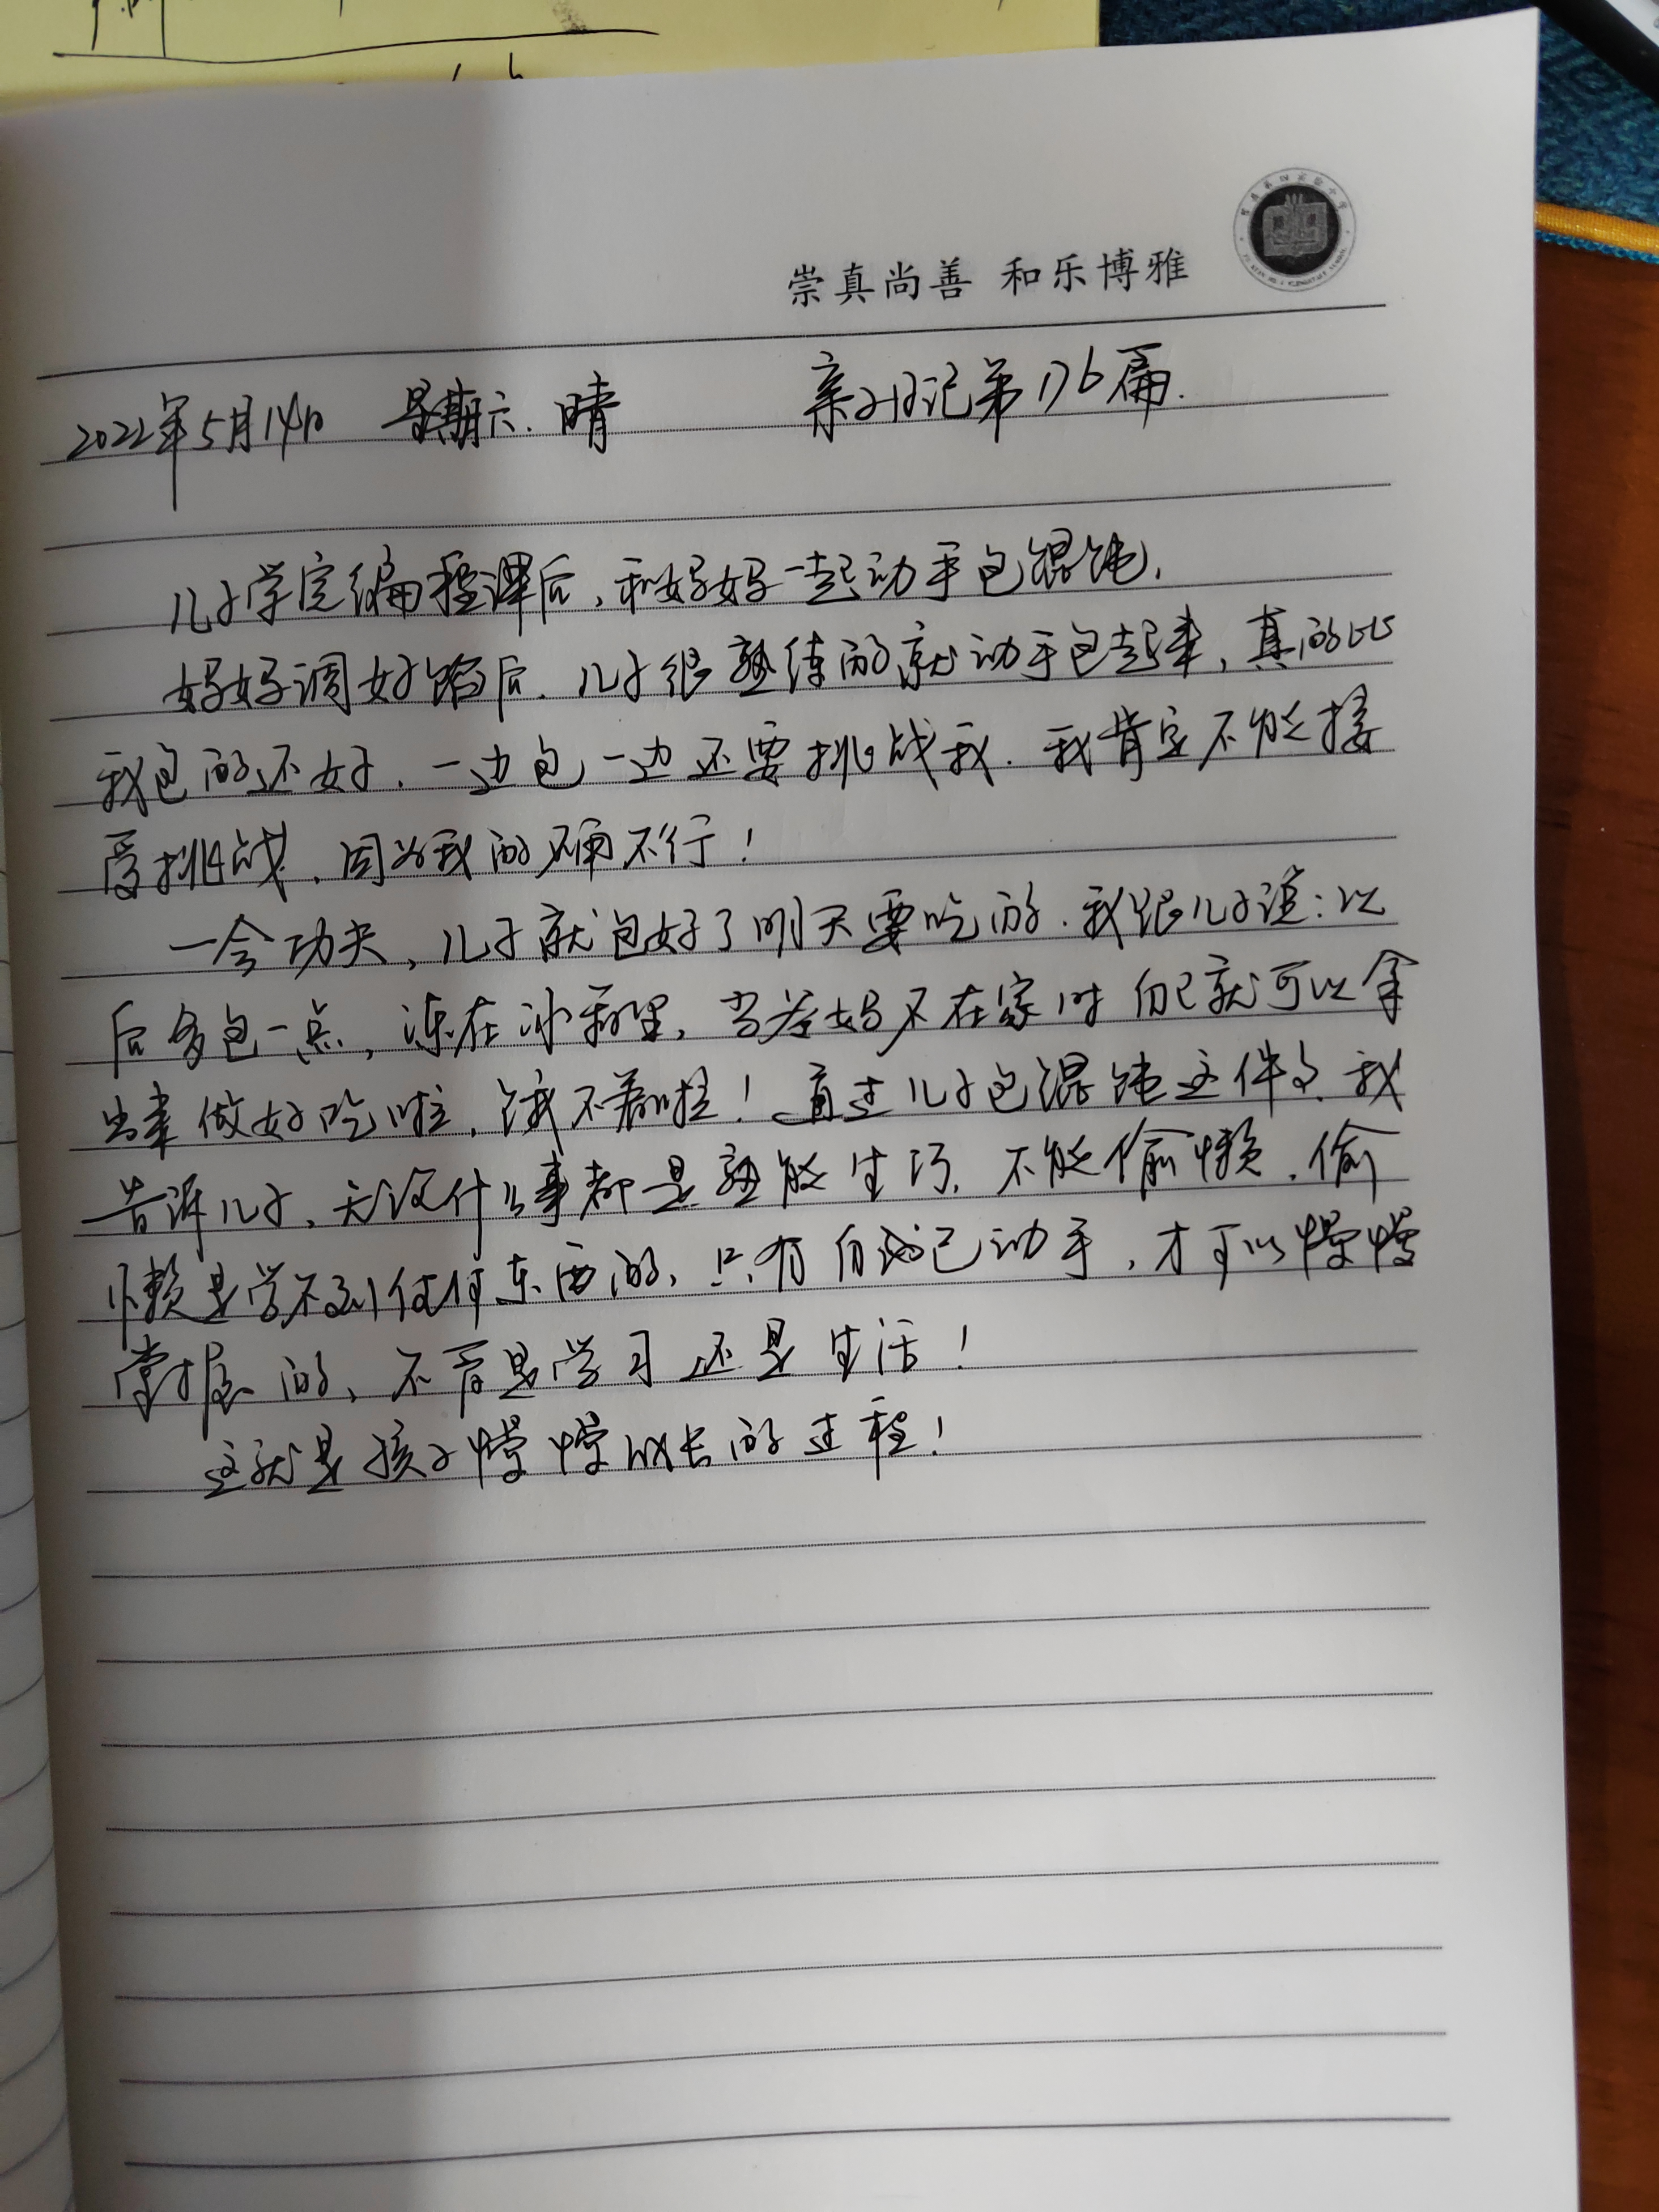 崇真尚善 和乐博雅
2022年5月14日 星期六.晴 亲子日记第176篇.
儿子学完编程课后,和妈妈一起动手包馄饨.
妈妈调好馅后.儿子很熟练的就动手包起来,真的比
我包的还好.一边包一边还要挑战我.我肯定不能接
受挑战.因为我的不行!
一会功夫,儿子就包好了明天要吃的.我跟儿子说:以
后多包一点,冻在冰箱里,当爸妈不在家时自己就可以拿
出来做好吃啦,饿不着啦!通过儿子包混饨这件事我
告诉儿子、无没什么事都是熟能生巧,不能偷懒.偷
懒是学不到任何东西的,只有自己动手,才可以慢慢
掌握的、不管是学习还是生活!
这就是孩子慢慢成长的过程!